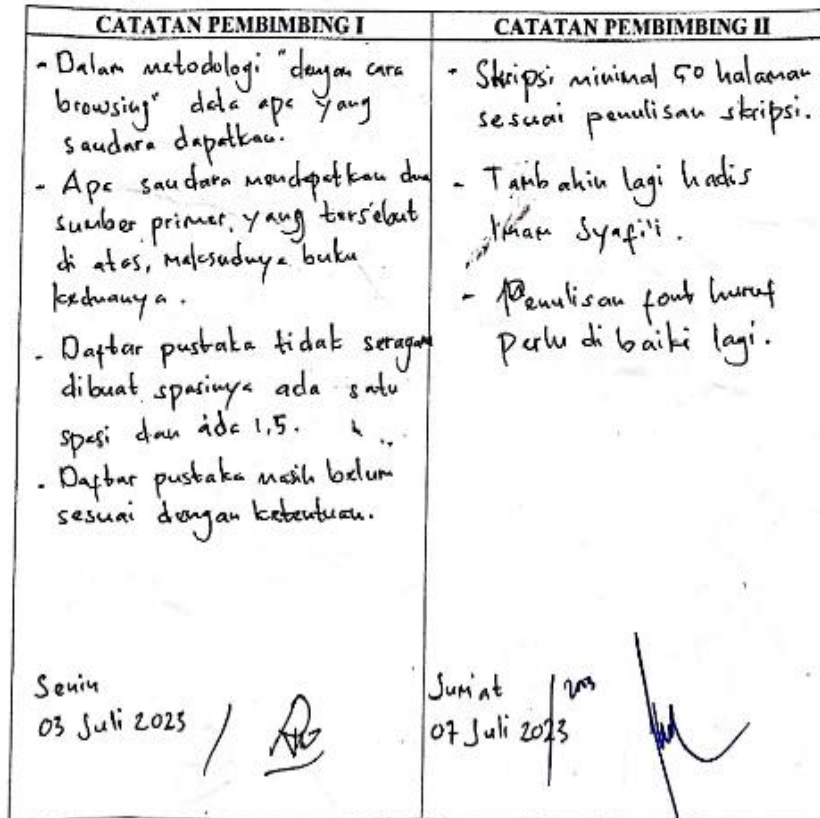 CATATAN PEMBIMBING I
- Dalam metodologi "dengan cara
browsing" data apa yang
saudara dapatkan.
- Apa saudara mendapatkan dua
sumber primer, yang tersebut
di atas, maksudnya buku
keduanya.
- Daftar pustaka tidak seragam
dibuat spasinya ada satu
spasi dan ada 1,5.
- Daftar pustaka masih belum
sesuai dengan ketentuan.
Senin
03 Juli 2023
CATATAN PEMBIMBING II
- Skripsi minimal 50 halaman
sesuai penulisan skripsi.
- Tambahin lagi hadis
Imam Syafi'i.
- Penulisan font huruf
perlu di baiki lagi.
Jum'at
07 Juli 2023